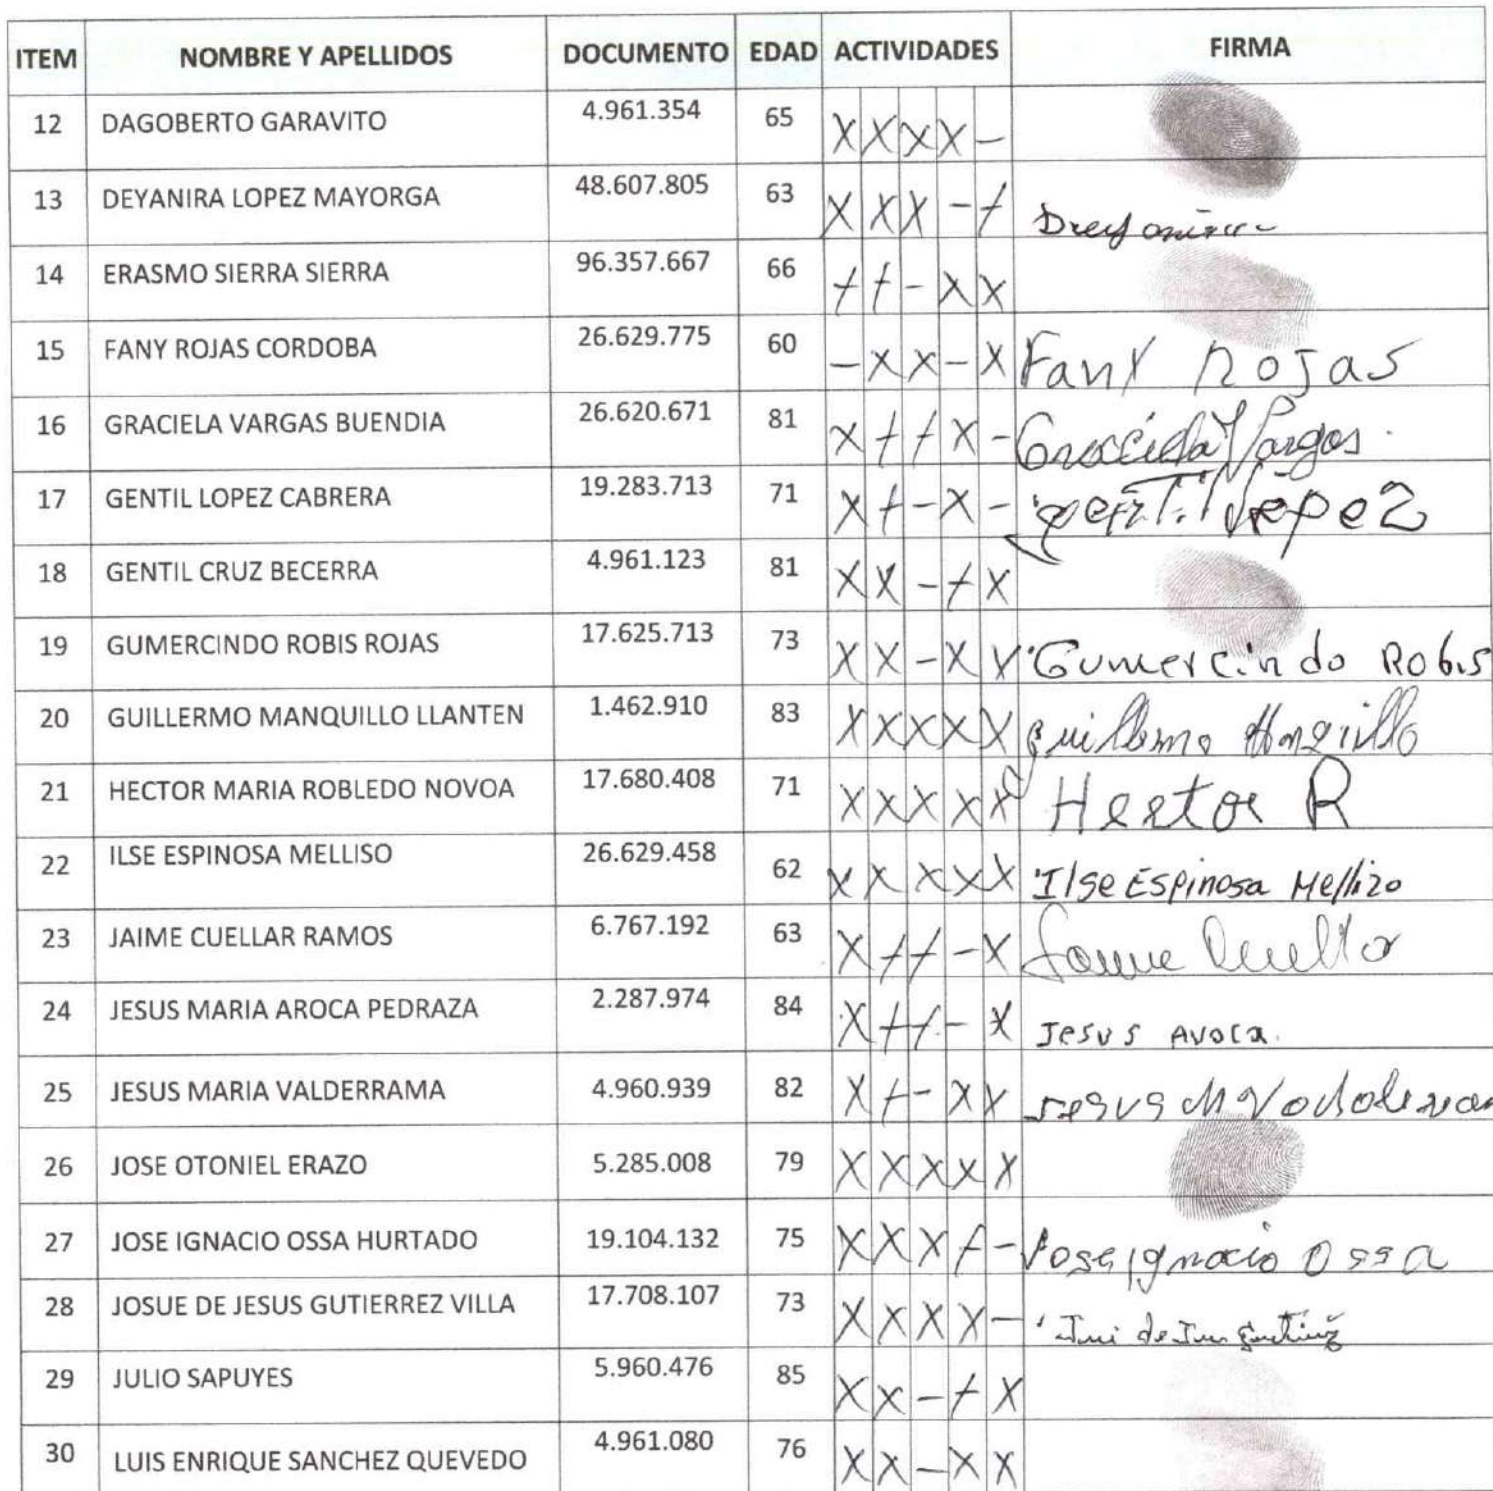 ITEM NOMBRE Y APELLIDOS DOCUMENTO EDAD ACTIVIDADES FIRMA
12 DAGOBERTO GARAVITO 4.961.354 65 X X X X -
13 DEYANIRA LOPEZ MAYORGA 48.607.805 63 X X X - +
14 ERASMO SIERRA SIERRA 96.357.667 66 + + - X X
15 FANY ROJAS CORDOBA 26.629.775 60 - X X - X Fany Rojas
16 GRACIELA VARGAS BUENDIA 26.620.671 81 X + + X - Graciela Vargas
17 GENTIL LOPEZ CABRERA 19.283.713 71 X + - X - gentil lopez
18 GENTIL CRUZ BECERRA 4.961.123 81 X X - + X
19 GUMERCINDO ROBIS ROJAS 17.625.713 73 X X - X X Gumercindo Robis
20 GUILLERMO MANQUILLO LLANTEN 1.462.910 83 X X X X X
21 HECTOR MARIA ROBLEDO NOVOA 17.680.408 71 X X X X X Hector R
22 ILSE ESPINOSA MELLISO 26.629.458 62 X X X X X Ilse Espinosa Mellizo
23 JAIME CUELLAR RAMOS 6.767.192 63 X + + - X
24 JESUS MARIA AROCA PEDRAZA 2.287.974 84 X + + - X Jesus Aroca
25 JESUS MARIA VALDERRAMA 4.960.939 82 X + - X X Jesus M
26 JOSE OTONIEL ERAZO 5.285.008 79 X X X X X
27 JOSE IGNACIO OSSA HURTADO 19.104.132 75 X X X + - Jose Ignacio Ossa
28 JOSUE DE JESUS GUTIERREZ VILLA 17.708.107 73 X X X X -
29 JULIO SAPUYES 5.960.476 85 X X - + X
30 LUIS ENRIQUE SANCHEZ QUEVEDO 4.961.080 76 X X - X X